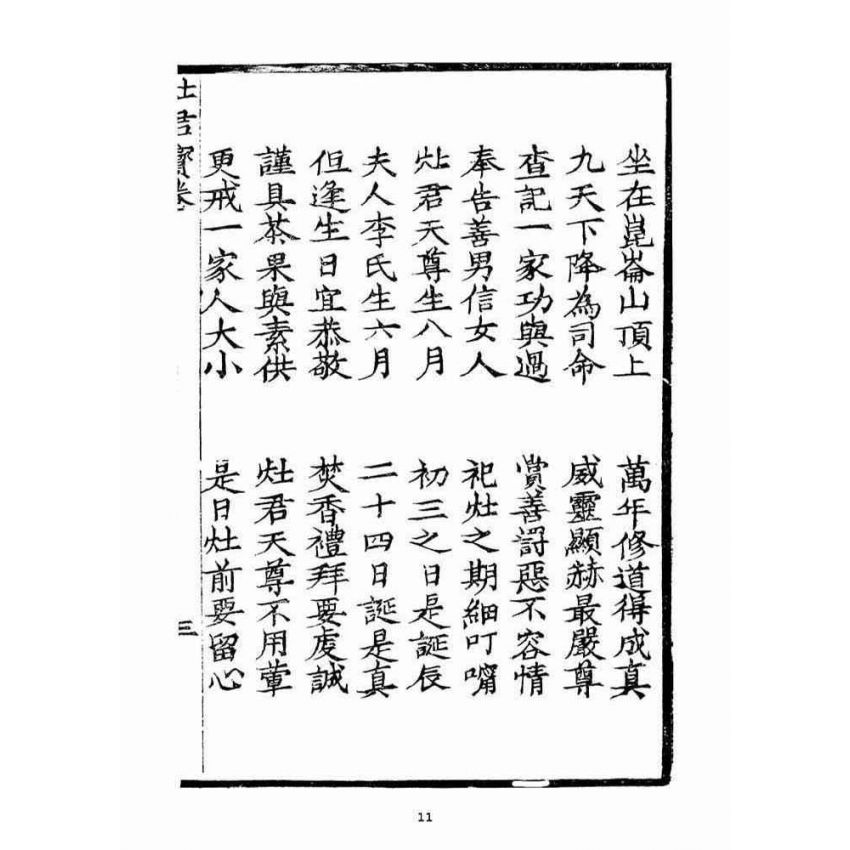 坐在崑崙山頂上　萬年修道得成真
九天下降為司命　威靈顯赫最嚴尊
查記一家功與過　賞善罰惡不容情
奉告善男信女人　祀灶之期細叮嚀
灶君天尊生八月　初三之日是誕辰
夫人李氏生六月　二十四日誕是真
但逢生日宜恭敬　焚香禮拜要虔誠
謹具茶果與素供　灶君天尊不用葷
更戒一家人大小　是日灶前要留心
灶君寶卷　三
11